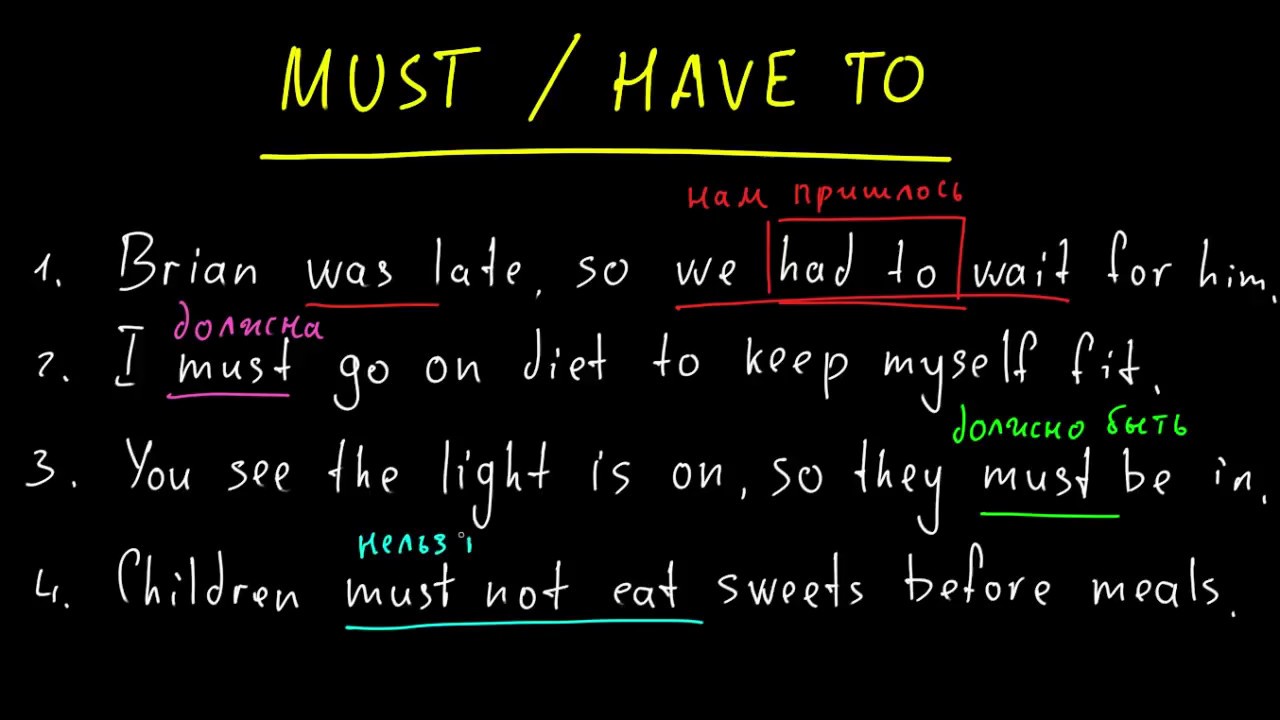 MUST / HAVE TO
нам пришлось
1. Brian was late, so we had to wait for him.
должна
2. I must go on diet to keep myself fit.
должно быть
3. You see the light is on, so they must be in.
нельз
4. Children must not eat sweets before meals.